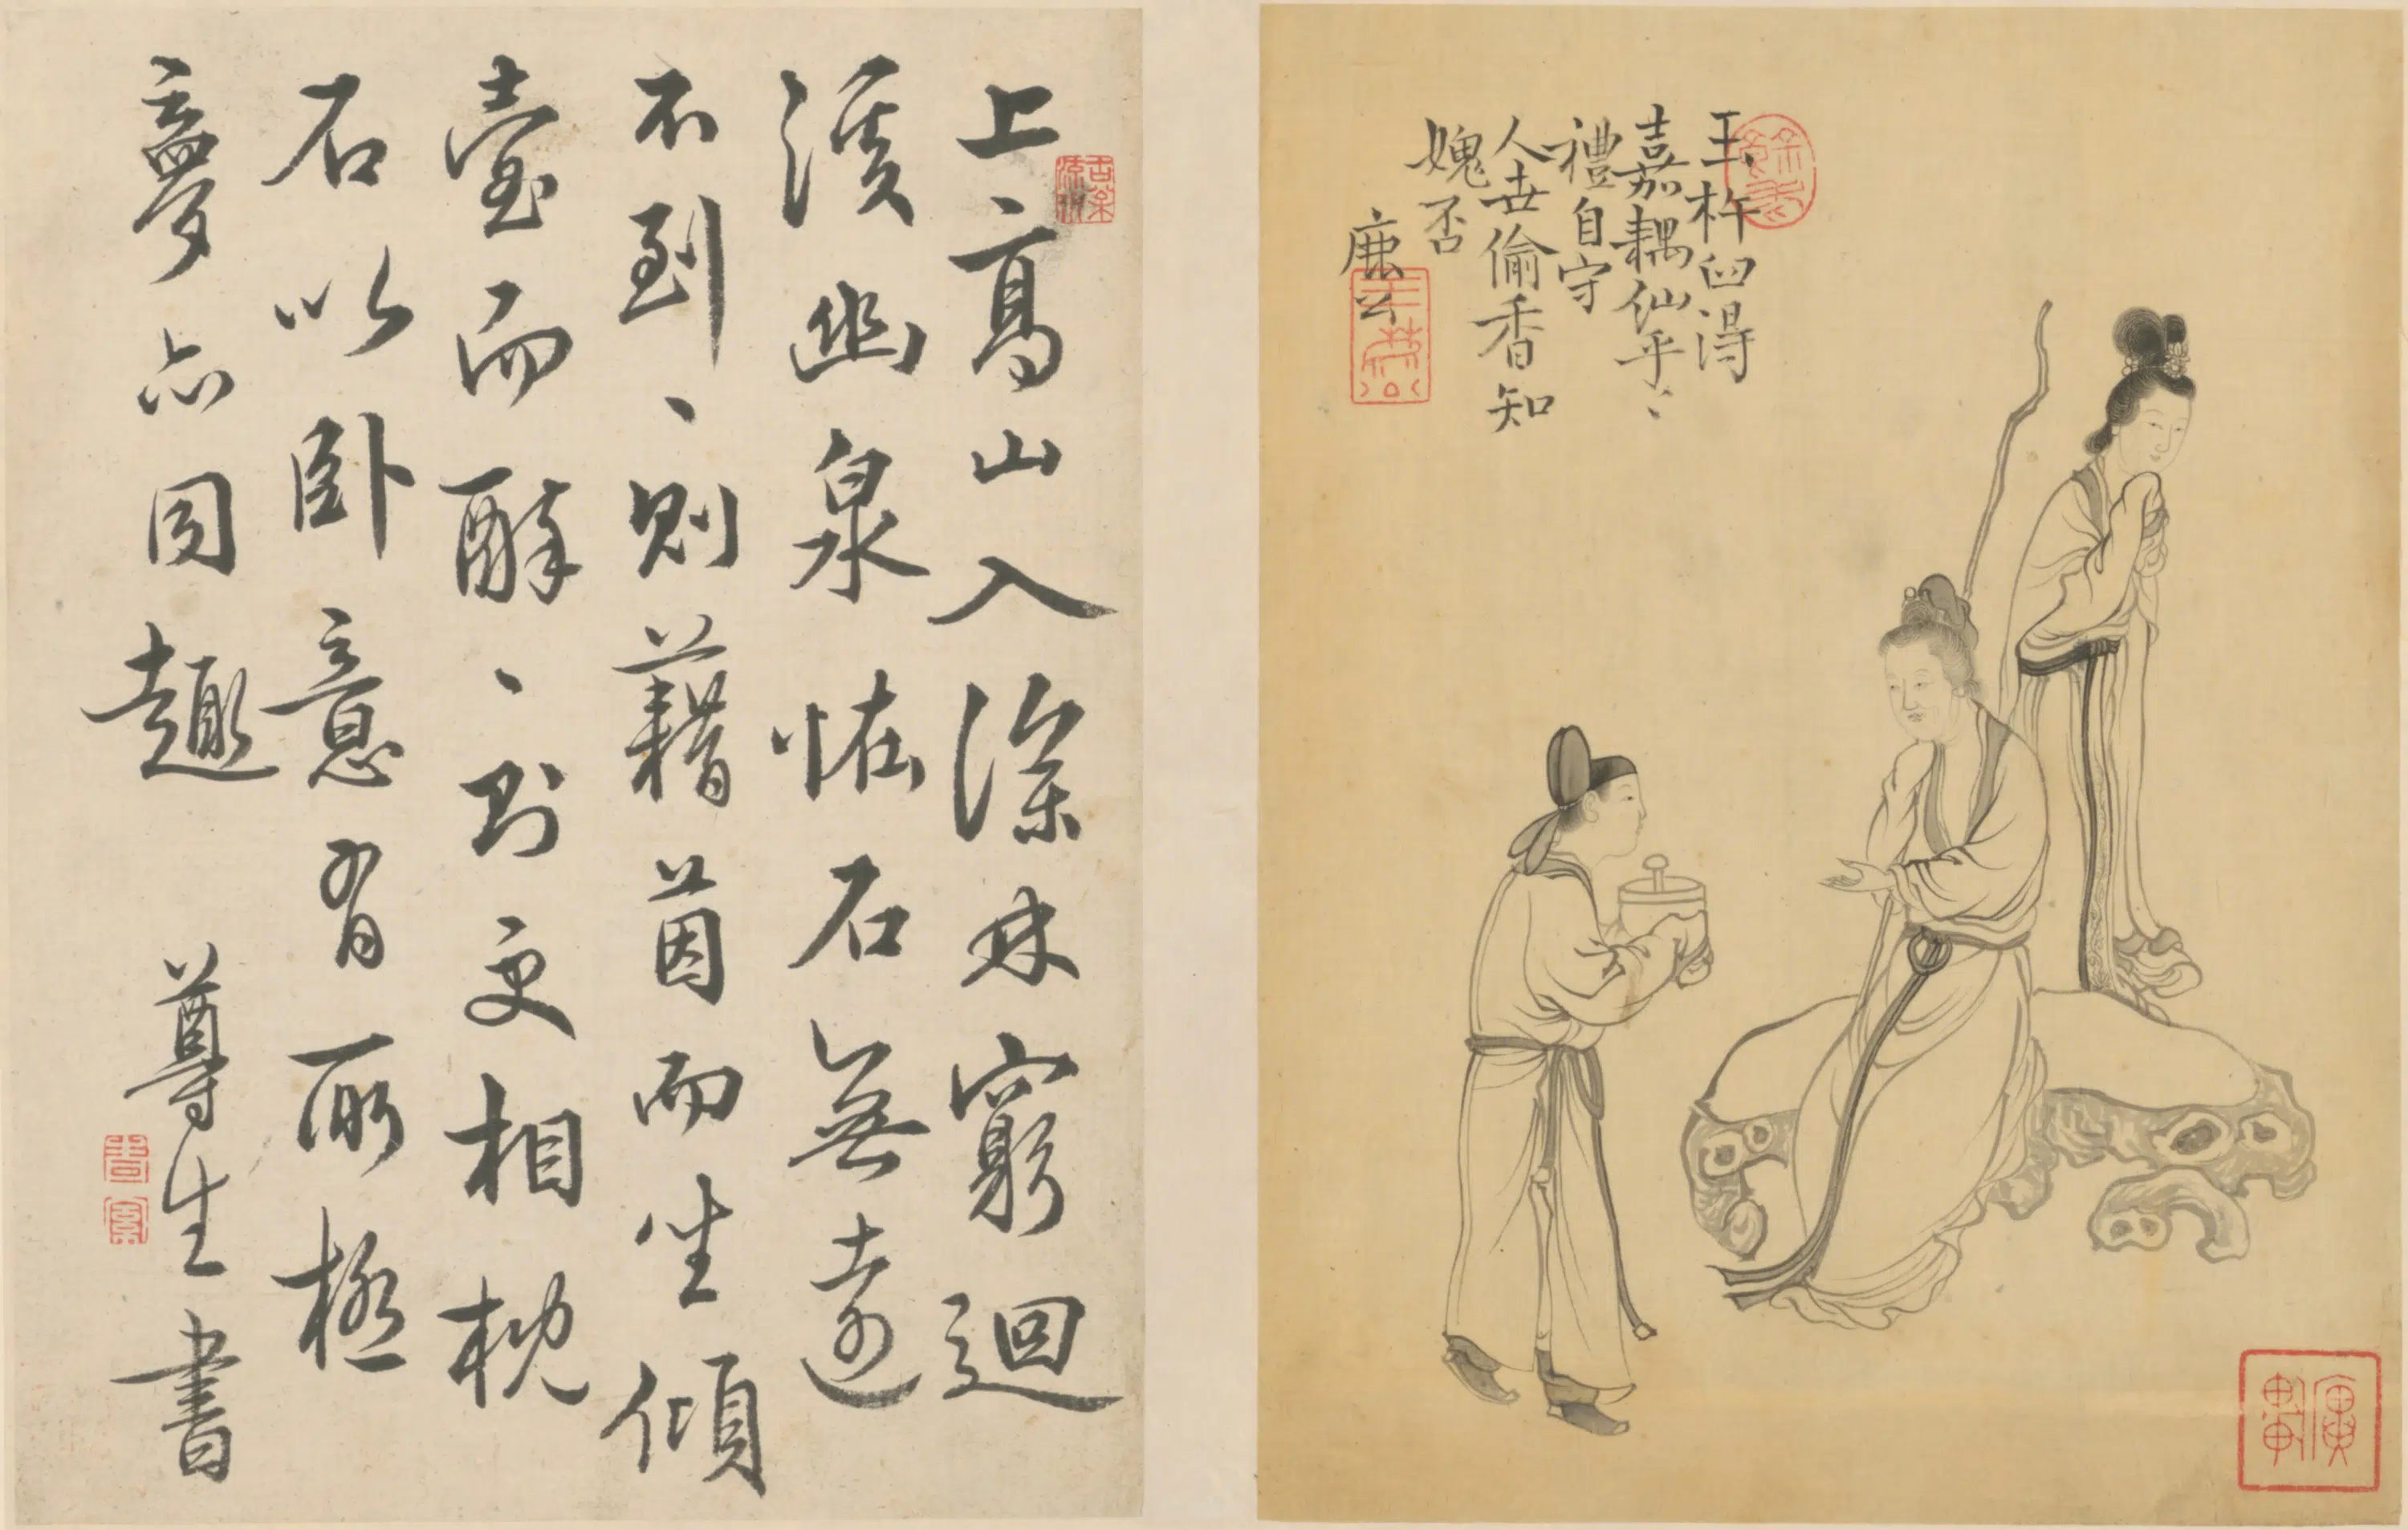 玉杵臼得
嘉耦仙乎〻
禮自守
人世偷香知
媿否
上高山入深林窮迴
溪幽泉恠石無遠
不到〻則藉茵而坐傾
壺而醉〻則更相枕
石以臥意有所極
夢亦同趣 尊生書